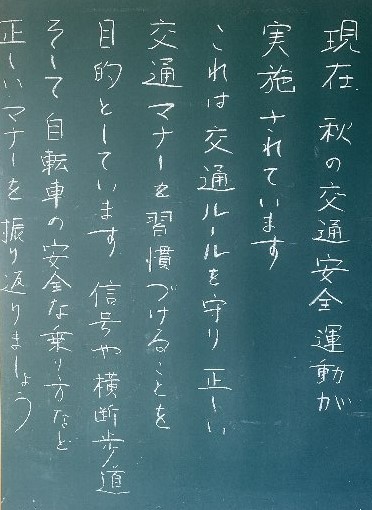 現在 秋の交通安全運動が
実施されています
これは交通ルールを守り 正しい
交通マナーを習慣づけることを
目的としています 信号や横断歩道
そして自転車の安全な乗り方など
正しいマナーを振り返りましょう